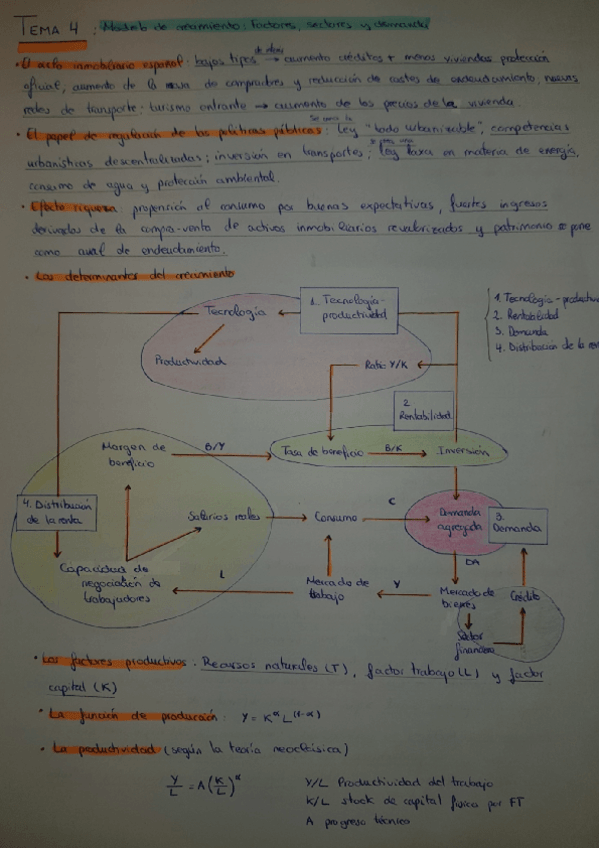 TEMA 4 : Modelo de crecimiento: factores, sectores y demanda
• El ciclo inmobiliario español: bajos tipos de interés → aumento créditos + menos viviendas protección
oficial, aumento de la masa de compradores y reducción de costes de endeudamiento, nuevas
redes de transporte: turismo entrante → aumento de los precios de la vivienda.
• El papel de regulación de las políticas públicas: Ley "todo urbanizable", competencias
urbanísticas descentralizadas; inversión en transportes; ley laxa en materia de energía,
consumo de agua y protección ambiental.
• Efecto riqueza: propensión al consumo por buenas expectativas, fuertes ingresos
derivados de la compra-venta de activos inmobiliarios revalorizados y patrimonio se pone
como aval de endeudamiento.
• Los determinantes del crecimiento
Tecnología
1. Tecnología-
productividad
1. Tecnología-
2. Rentabilidad
3. Demanda
4. Distribución de la
Productividad
Ratio Y/K
2.
Rentabilidad
Margen de
beneficio
B/Y
Tasa de beneficio
B/K
Inversión
4. Distribución
de la renta
Salarios reales
Consumo
C
Demanda
agregada
3.
Demanda
Capacidad de
negociación de
trabajadores
L
Mercado de
trabajo
Y
DA
Mercado de
bienes
Crédito
Sector
financiero
• Los factores productivos: Recursos naturales (T), factor trabajo (L) y factor
capital (K)
• La función de producción: Y = K^α L^(1-α)
• La productividad (según la teoría neoclásica)
Y/L = A(K/L)^α
Y/L Productividad del trabajo
K/L stock de capital físico por FT
A progreso técnico